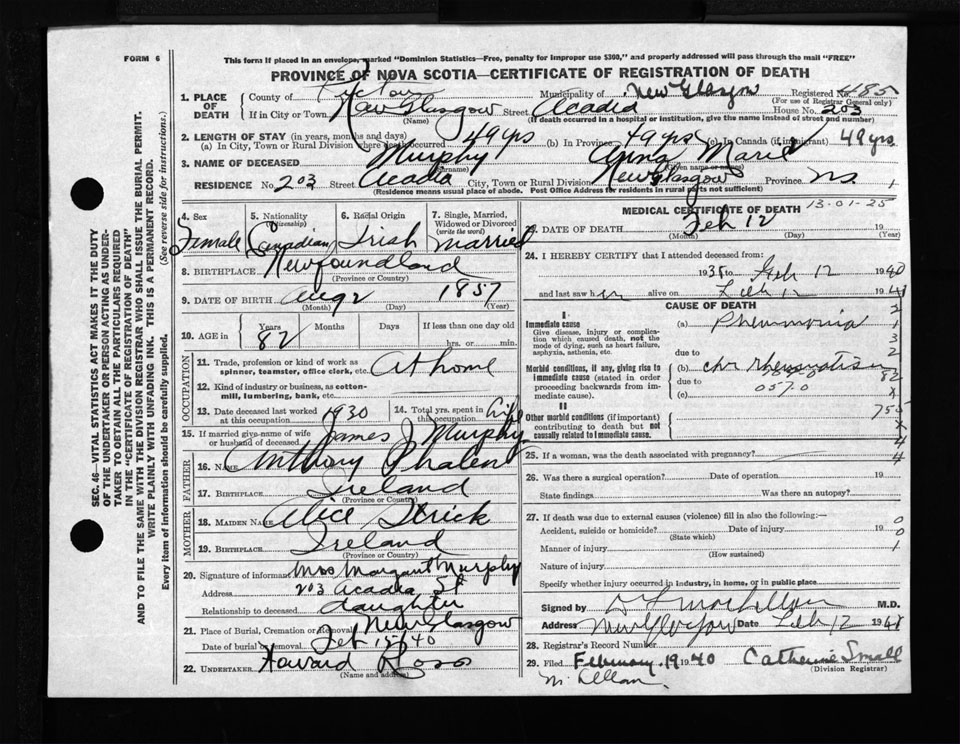 FORM 6
This form if placed in an envelope, marked "Dominion Statistics—Free, penalty for improper use $300," and properly addressed will pass through the mail "FREE"
PROVINCE OF NOVA SCOTIA—CERTIFICATE OF REGISTRATION OF DEATH
SEC. 46—VITAL STATISTICS ACT MAKES IT THE DUTY
OF THE UNDERTAKER OR PERSON ACTING AS UNDER-
TAKER TO OBTAIN ALL THE PARTICULARS REQUIRED
IN THE "CERTIFICATE OF REGISTRATION OF DEATH"
AND TO FILE THE SAME WITH THE DIVISION REGISTRAR WHO SHALL ISSUE THE BURIAL PERMIT.
WRITE PLAINLY WITH UNFADING INK. THIS IS A PERMANENT RECORD.
Every item of information should be carefully supplied. (See reverse side for instructions.)
1. PLACE OF DEATH
County of Pictou Municipality of New Glasgow Registered No. 485
(For use of Registrar General only)
If in City or Town New Glasgow Street Acadia House No. 203
(Name) (If death occurred in a hospital or institution, give the name instead of street and number)
2. LENGTH OF STAY (in years, months and days)
(a) In City, Town or Rural Division where death occurred 49 yrs (b) In Province 49 yrs (c) In Canada (if immigrant) 49 yrs
3. NAME OF DECEASED Murphy Anna Marie
(Surname) (Given name or names)
RESIDENCE No. 203 Street Acadia City, Town or Rural Division New Glasgow Province N.S.
(Residence means usual place of abode. Post Office Address for residents in rural parts not sufficient)
4. Sex Female
5. Nationality (Citizenship) Canadian
6. Racial Origin Irish
7. Single, Married, Widowed or Divorced (write the word) married
8. BIRTHPLACE Newfoundland
(Province or Country)
9. DATE OF BIRTH Aug 2 1857
(Month) (Day) (Year)
10. AGE in Years 82 Months Days If less than one day old
hrs. or min.
OCCUPATION
11. Trade, profession or kind of work as spinner, teamster, office clerk, etc. At home
12. Kind of industry or business, as cotton-mill, lumbering, bank, etc.
13. Date deceased last worked at this occupation 1930 14. Total yrs. spent in this occupation life
15. If married give name of wife or husband of deceased James J Murphy
FATHER
16. NAME Anthony Phalen
17. BIRTHPLACE Ireland
(Province or Country)
MOTHER
18. MAIDEN NAME Alice Strick
19. BIRTHPLACE Ireland
(Province or Country)
20. Signature of informant Mrs Margaret Murphy
Address 203 Acadia St
Relationship to deceased daughter
21. Place of Burial, Cremation or Removal New Glasgow
Date of burial or removal Feb 15 1940
22. UNDERTAKER Howard Ross
(Name and address)
MEDICAL CERTIFICATE OF DEATH 13-01-25
23. DATE OF DEATH Feb 12 19
(Month) (Day) (Year)
24. I HEREBY CERTIFY that I attended deceased from:
1935 to Feb 12 1940
and last saw her alive on Feb 12 1940
CAUSE OF DEATH
I
Immediate cause
Give disease, injury or complication which caused death, not the mode of dying, such as heart failure, asphyxia, asthenia, etc.
(a) Pneumonia
due to
Morbid conditions, if any, giving rise to immediate cause (stated in order proceeding backwards from immediate cause).
(b) chr Rheumatism
due to
057.0
(c)
II
Other morbid conditions (if important) contributing to death but not causally related to immediate cause.
25. If a woman, was the death associated with pregnancy?
26. Was there a surgical operation? Date of operation 19
State findings Was there an autopsy?
27. If death was due to external causes (violence) fill in also the following:—
Accident, suicide or homicide? Date of injury 19
(State which)
Manner of injury
(How sustained)
Nature of injury
Specify whether injury occurred in industry, in home, or in public place
Signed by M.D.
Address New Glasgow Date Feb 12 194
28. Registrar's Record Number
29. Filed February 19 1940 Catherine Small
(Division Registrar)